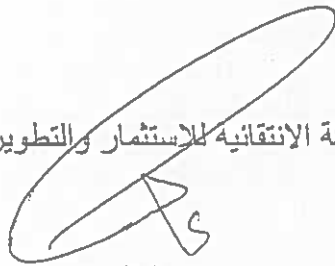 ة الانتقائية للاستثمار والتطوير